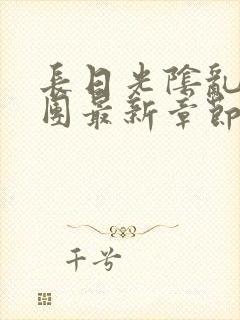 長日光陰亂
團最新章節
千兮